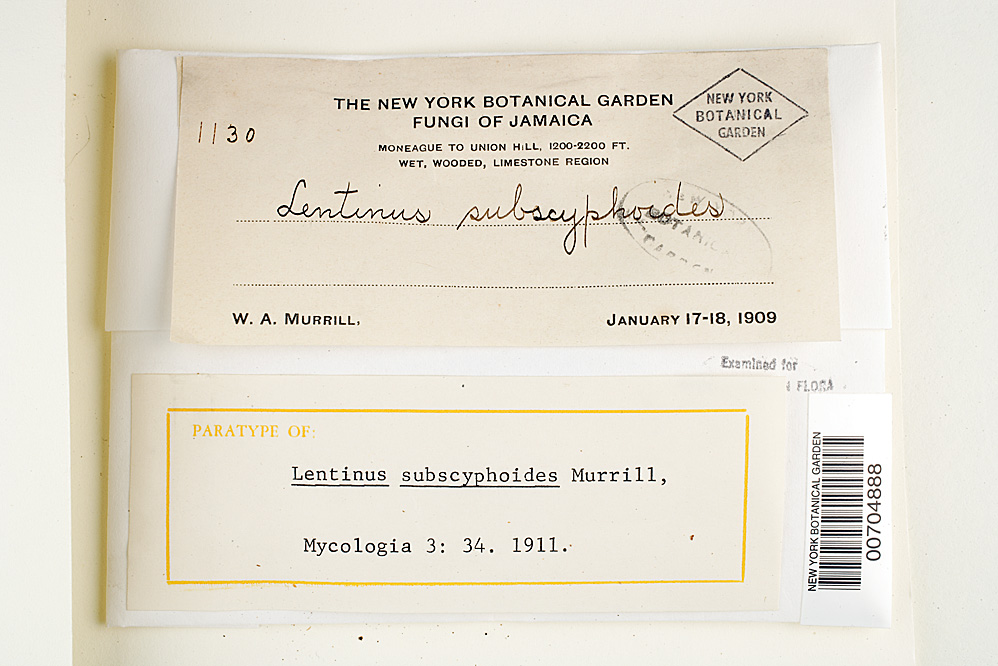 THE NEW YORK BOTANICAL GARDEN
FUNGI OF JAMAICA
1130
MONEAGUE TO UNION HILL, 1200-2200 FT.
WET, WOODED, LIMESTONE REGION
NEW YORK
BOTANICAL
GARDEN
Lentinus subscyphoides
NEW YORK
BOTANICAL
GARDEN
W. A. MURRILL, JANUARY 17-18, 1909
Examined for
FLORA
PARATYPE OF:
Lentinus subscyphoides Murrill,
Mycologia 3: 34. 1911.
NEW YORK BOTANICAL GARDEN
00704888